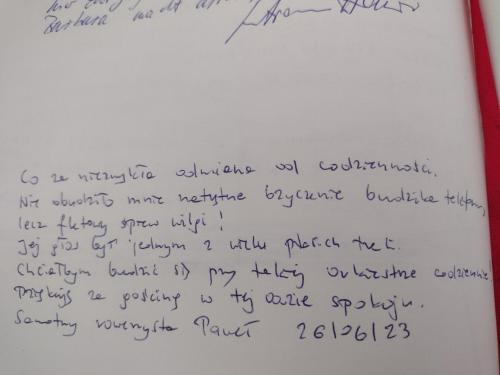 Barbara
Co za niezwykła odmiana od codzienności.
Nie obudziło mnie natrętne bzyczenie budzika telefonu,
lecz fletowy śpiew wilgi!
Jej głos był jednym z wielu ptasich treli.
Chciałbym budzić się przy takiej orkiestrze codziennie
Dziękuję za gościnę w tej oazie spokoju.
Samotny rowerzysta Paweł 26/06/23